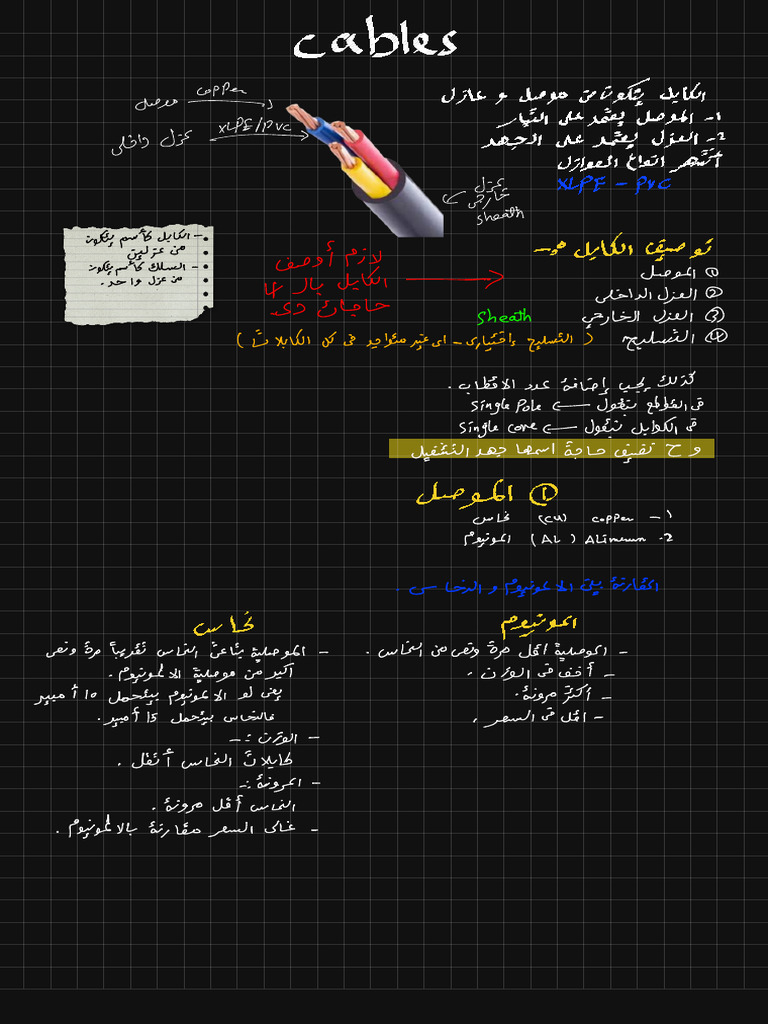 cables
الكابل يتكون من موصل و عازل
١- الموصل يعتمد على التيار
2- العزل يعتمد على الجهد
أشهر أنواع العوازل
XLPE - PVC
موصل copper
عزل داخلى XLPE/PVC
عزل
خارجي
sheath
- الكابل كأسم يتكون
من عزلين
- السلك كأسم يتكون
من عزل واحد.
لازم أوصف
الكابل بالـ 4
حاجات دى
توصيف الكابل :-
① الموصل
② العزل الداخلى
③ العزل الخارجي Sheath
④ التسليح ( التسليح إختيارى - اى غير متواجد فى كل الكابلات )
كذلك يجب إضافة عدد الاقطاب .
فى القواطع بنقول Single Pole
فى الكوابل بنقول Single core
و ح تضيف حاجة اسمها جهد التشغيل
① الموصل
١- copper (cu) نحاس
2. Aliminum (AL) المونيوم
المقارنة بين الالمونيوم و النحاس .
المونيوم
- الموصلية اقل مرة ونص من النحاس .
- أخف فى الوزن .
- أكثر مرونة .
- اقل فى السعر .
نحاس
- الموصلية بتاعت النحاس تقريباً مرة ونص
اكبر من موصلية الالمونيوم .
يعنى لو الالمونيوم بيتحمل 10 أمبير
فالنحاس بيتحمل 15 أمبير .
- الوزن :-
كابلات النحاس أتقل .
- المرونة :-
النحاس أقل مرونة .
- غالى السعر مقارنة بالالمونيوم .